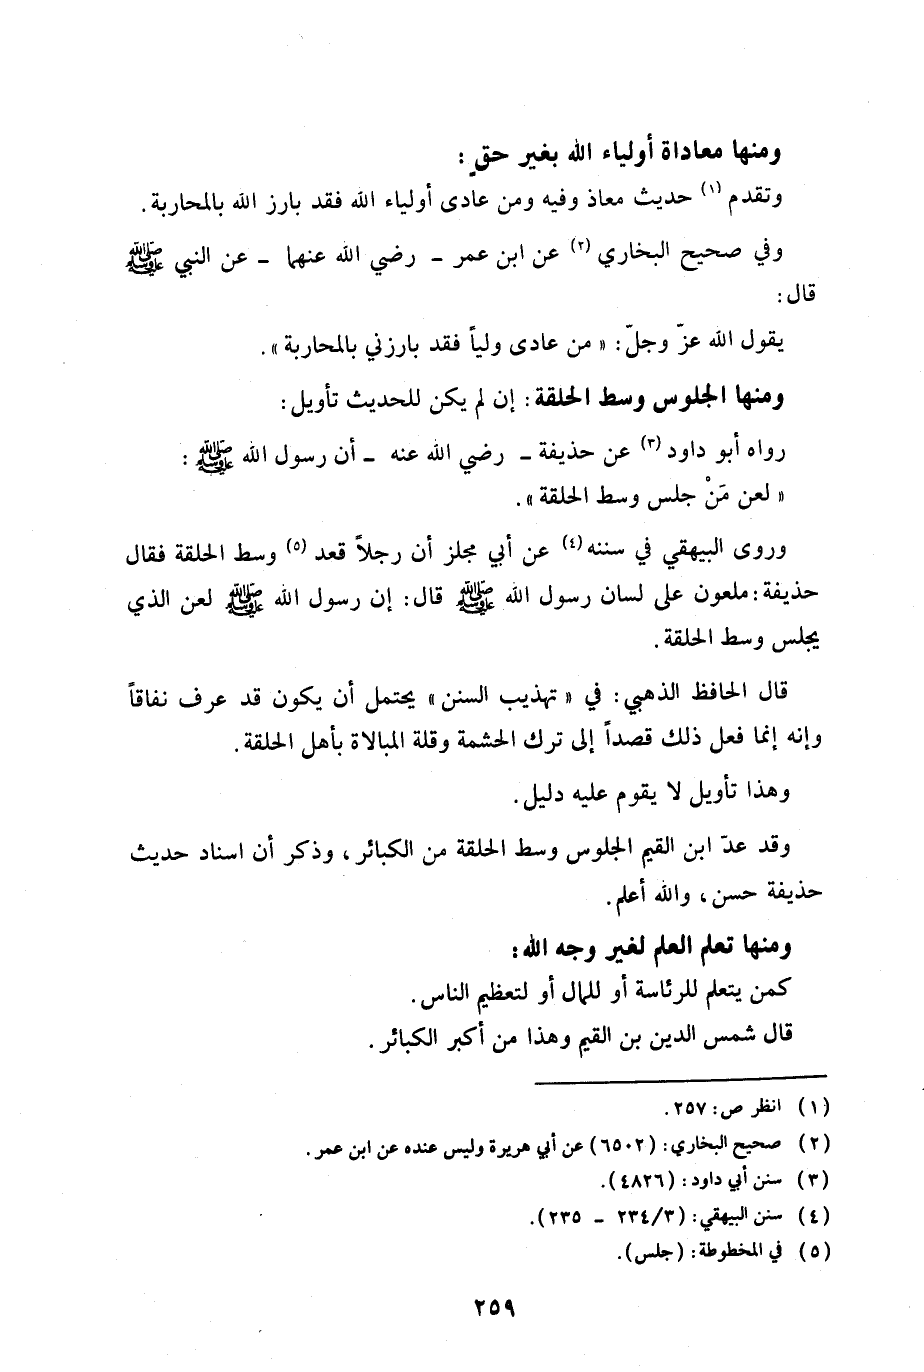 ومنها معاداة أولياء الله بغير حقٍ :
وتقدم (١) حديث معاذ وفيه ومن عادى أولياء الله فقد بارز الله بالمحاربة .
وفي صحيح البخاري (٢) عن ابن عمر ـ رضي الله عنهما ـ عن النبي ﷺ
قال :
يقول الله عزّ وجلّ : « من عادى ولياً فقد بارزني بالمحاربة » .
ومنها الجلوس وسط الحلقة : إن لم يكن للحديث تأويل :
رواه أبو داود (٣) عن حذيفة ـ رضي الله عنه ـ أن رسول الله ﷺ :
« لعن مَنْ جلس وسط الحلقة » .
وروى البيهقي في سننه (٤) عن أبي مجلز أن رجلاً قعد (٥) وسط الحلقة فقال
حذيفة : ملعون على لسان رسول الله ﷺ قال : إن رسول الله ﷺ لعن الذي
يجلس وسط الحلقة .
قال الحافظ الذهبي : في « تهذيب السنن » يحتمل أن يكون قد عرف نفاقاً
وإنه إنما فعل ذلك قصداً إلى ترك الحشمة وقلة المبالاة بأهل الحلقة .
وهذا تأويل لا يقوم عليه دليل .
وقد عدّ ابن القيم الجلوس وسط الحلقة من الكبائر ، وذكر أن اسناد حديث
حذيفة حسن ، والله أعلم .
ومنها تعلم العلم لغير وجه الله :
كمن يتعلم للرئاسة أو للمال أو لتعظيم الناس .
قال شمس الدين بن القيم وهذا من أكبر الكبائر .
(١) انظر ص : ٢٥٧ .
(٢) صحيح البخاري : (٦٥٠٢) عن أبي هريرة وليس عنده عن ابن عمر .
(٣) سنن أبي داود : (٤٨٢٦) .
(٤) سنن البيهقي : (٢٣٤/٣ ـ ٢٣٥) .
(٥) في المخطوطة : (جلس) .
٢٥٩